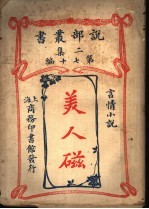 說部叢書
二集
第七十編
言情小說
美人磁
上海商務印書館發行